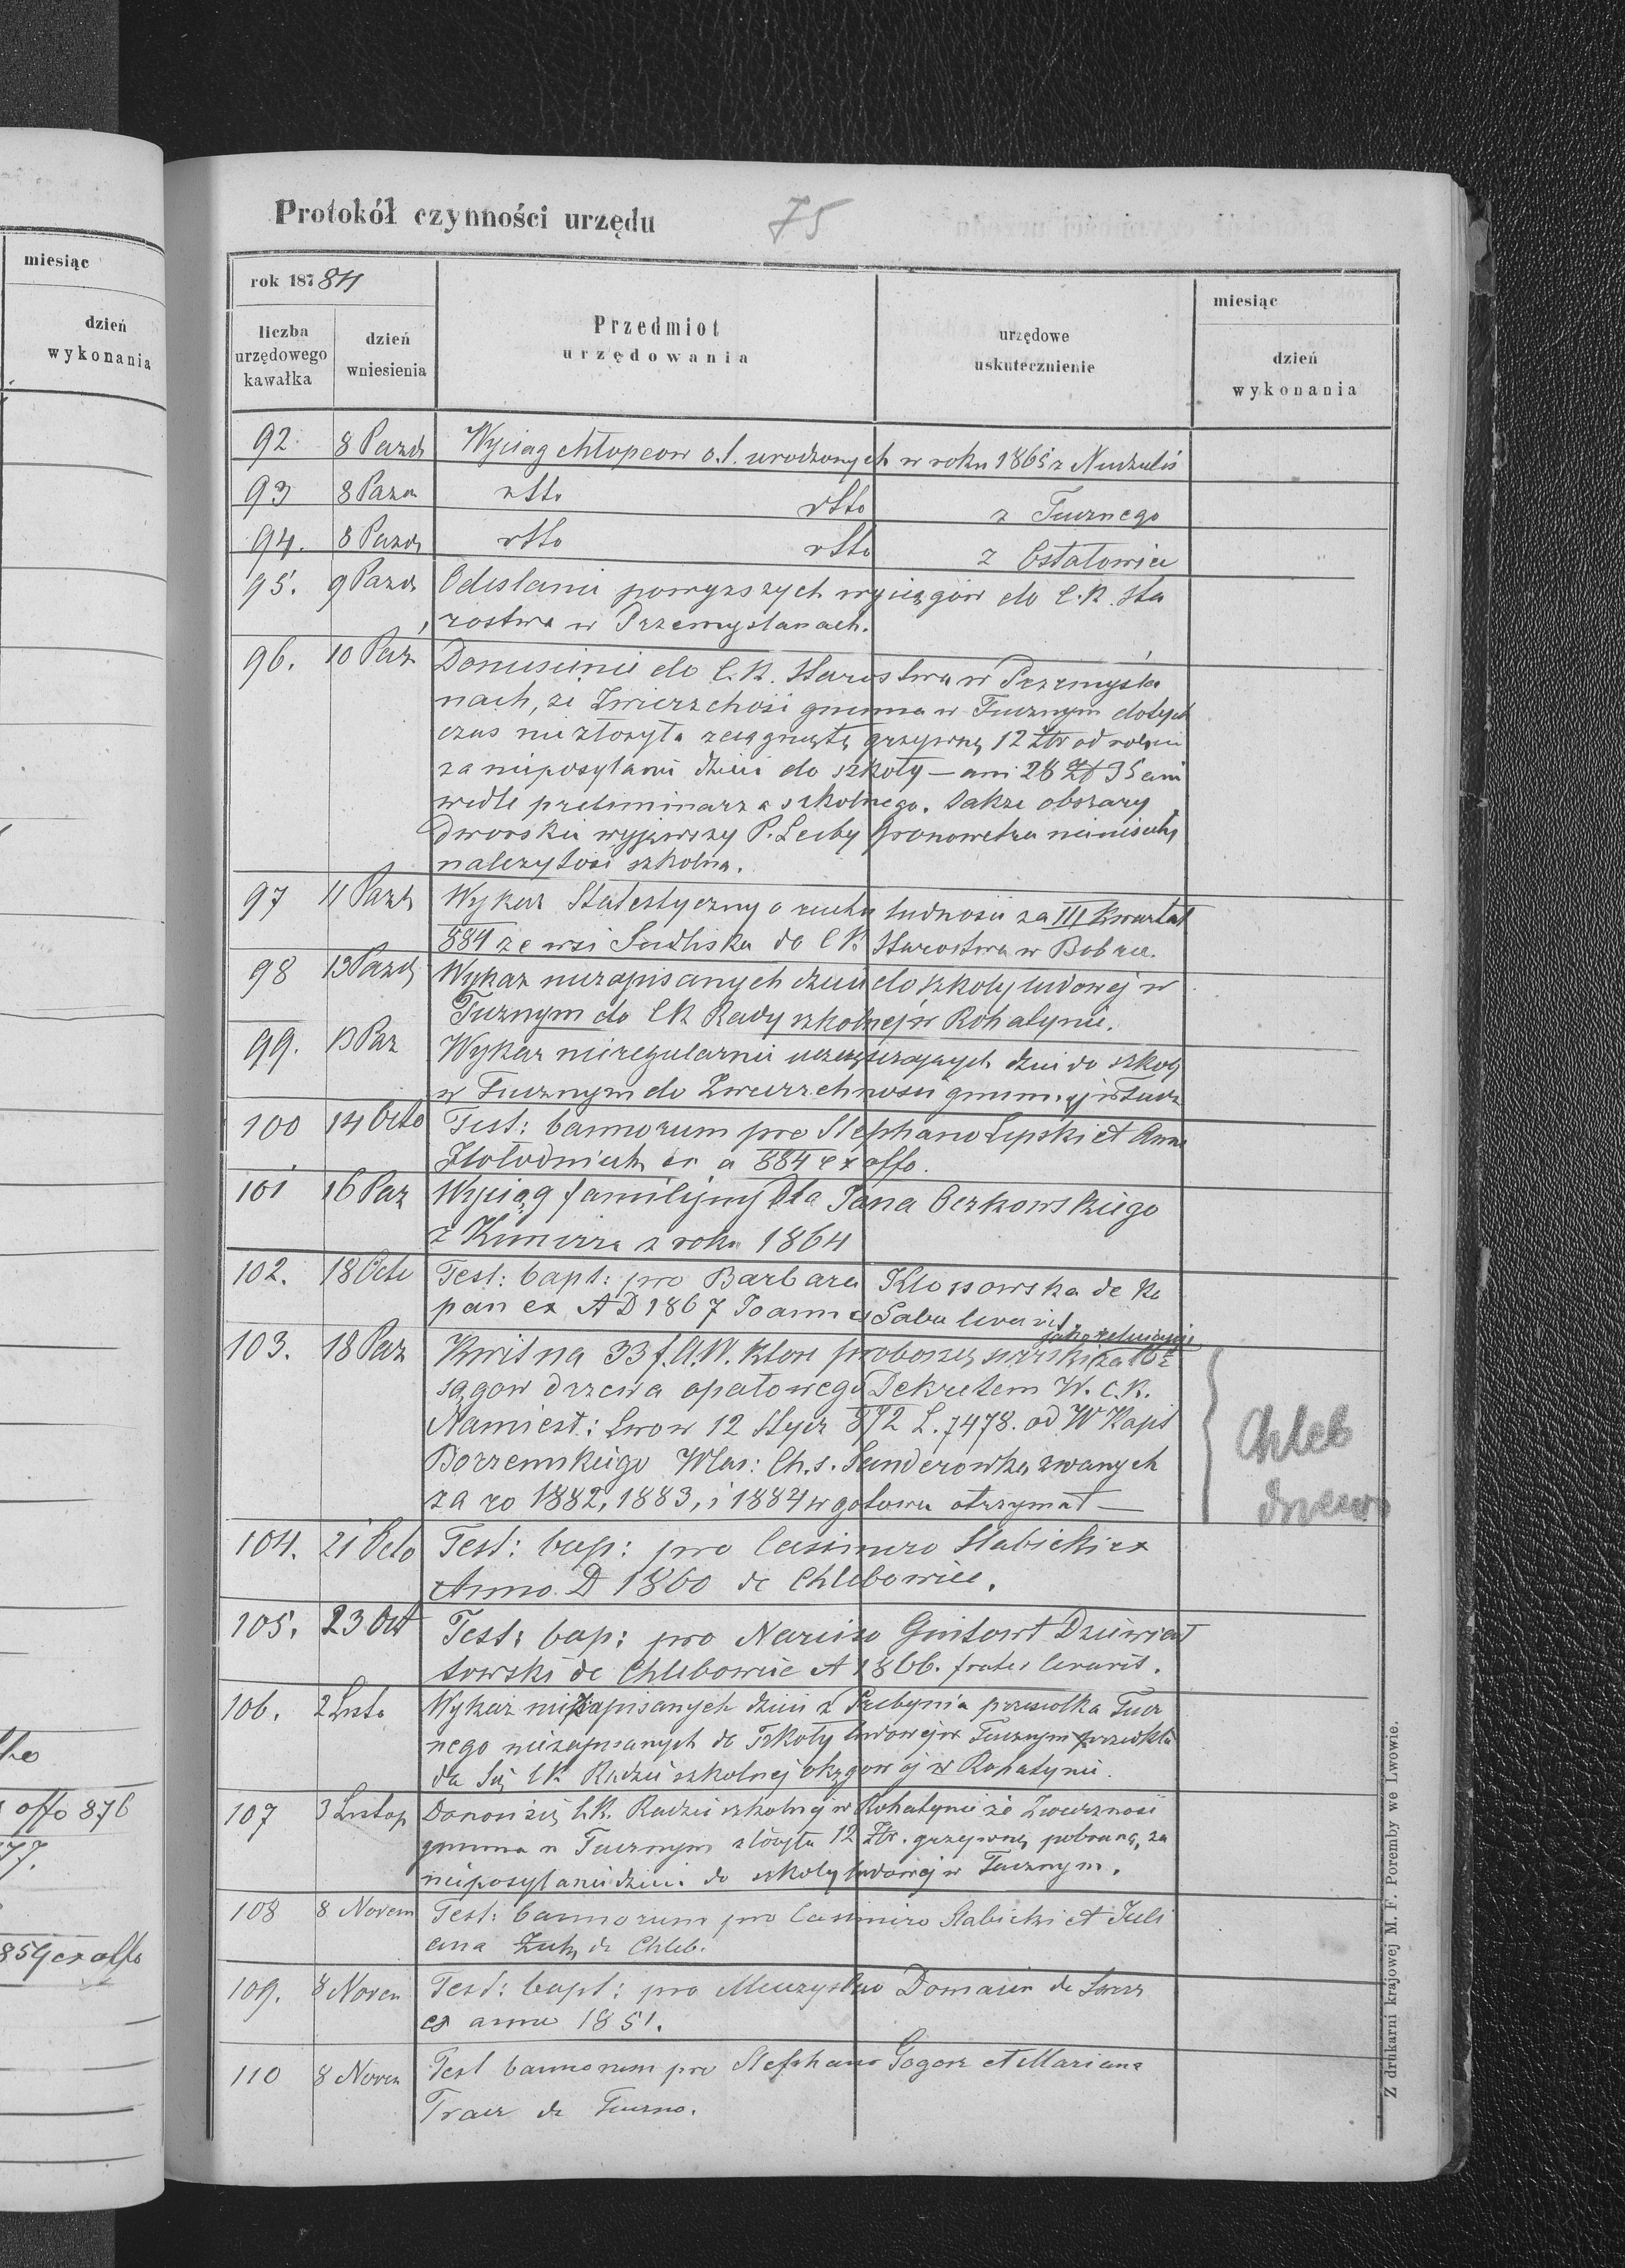 miesiąc
dzień
wykonania
offo 876
77.
859 ex offo
Protokół czynności urzędu
75
rok 187 84
liczba
urzędowego
kawałka
dzień
wniesienia
Przedmiot
urzędowania
urzędowe
uskutecznienie
miesiąc
dzień
wykonania
92. 8 Pazd Wyciag chłopcow o.ł. urodzonych w roku 1865 z
93 8 Pazd dtto dtto z Tucznego
94. 8 Pazd dtto dtto z Ostałowiec
95. 9 Pazd Odesłanie powyzszych wyciągów do C.K. Sta
rostwa w Przemyslanach.
96. 10 Paz Doniesienie do C.K. Starostwa w Przemyśla
nach, ze Zwierzchość gminna w Tucznym dotych
czas nie złozyła ściągniętą grzywnę 12 Złr od
za nieposyłanie dzieci do szkoły — ani 28 Zł 35
wedle preliminarza szkolnego. Takze obszary
Dworskie wyjąwszy P. Leiby
nalezytosć szkolną.
97 11 Pazd Wykaz Statestyczny o ruchu ludnosci za III Kwartał
884 ze wsi Siedliska do C K Starostwa w Bobrce.
98 13 Pazd Wykaz niezapisanych dzieci do szkoły ludowej w
Tucznym do C K Rady szkolnej w Rohatynie.
99. 13 Paz Wykaz nieregularnie uczęszczających dzieci do szkoły
w Tucznym do Zwierzchnosci gminnej w Tucz
100 14 Octo Test: bannorum pro Stephano Lipski et Anna
a 884 ex offo.
101 16 Paz Wyciąg familijny Dla Jana Oczkowskiego
z Kimirza z roku 1864
102. 18 Octo Test: bapt: pro Barbara Klossowska de Ko
pan ex A D 1867 Joannes
103. 18 Paz Kwit na 33 f. A.W. Które proboszcz za 16
sągow drzewa opałowego Dekretem W. C.K.
Namiest: Lwow 12 Stycz 872 L. 7478. od W Kajet
Borzemskiego Włas: Ch. s. Sanderowka zwanych
za ro 1882, 1883, i 1884 w gotowce otrzymał —
Chleb
drzewo
104. 21 Octo Test: bap: pro Casimiro Słabicki ex
Anno D 1860 de Chlebowice.
105. 23 Oct Test: bap: pro Narciso Gintowt Dziewiał
towski de Chlebowice A 1866. frater
106. 2 Listo Wykaz niezapisanych dzieci z przesiołka Tucz
nego niezapisanych do Szkoły ludowej w Tucznym przedkła
da Się C K Radzie szkolnej okręgowej w Rohatynie.
107 3 Listop Donosi się C.K. Radzie szkolnej w Rohatynie ze Zwierznosć
gminna w Tucznym złozyła 12 Złr. grzywnę pobraną, za
nieposyłanie dzieci do szkoły ludowej w Tucznym.
108 8 Novem Test: bannorum pro Casimiro Słabicki et Juli
ana de Chleb.
109. 8 Novem Test: bapt: pro Mieczyslao Domain de Swirz
ex anno 1851.
110 8 Novem Test bannorum pro Stephano Gogosz et Mariana
Tracz de Tuczno.
Z drukarni krajowej M. F. Poremby we Lwowie.